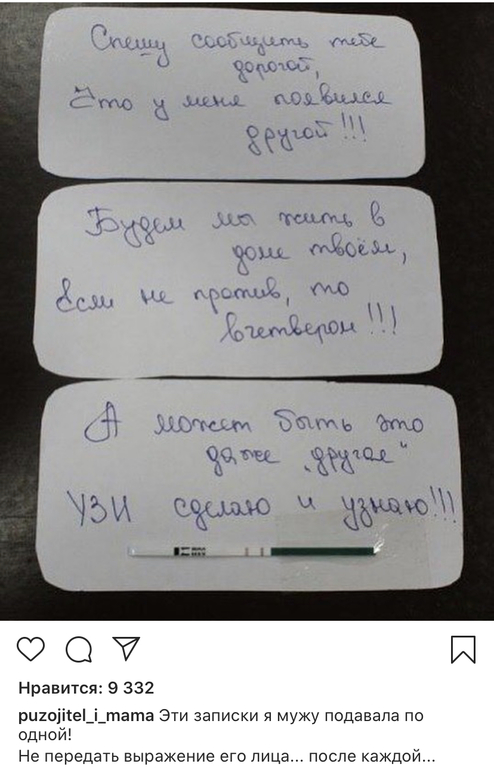 Спешу сообщить тебе
дорогой,
Что у меня появился
другой!!!
Будем мы жить в
доме твоём,
Если не против, то
вчетвером!!!
А может быть это
даже "другая"
УЗИ сделаю и узнаю!!!
Нравится: 9 332
puzojitel_i_mama Эти записки я мужу подавала по
одной!
Не передать выражение его лица... после каждой...